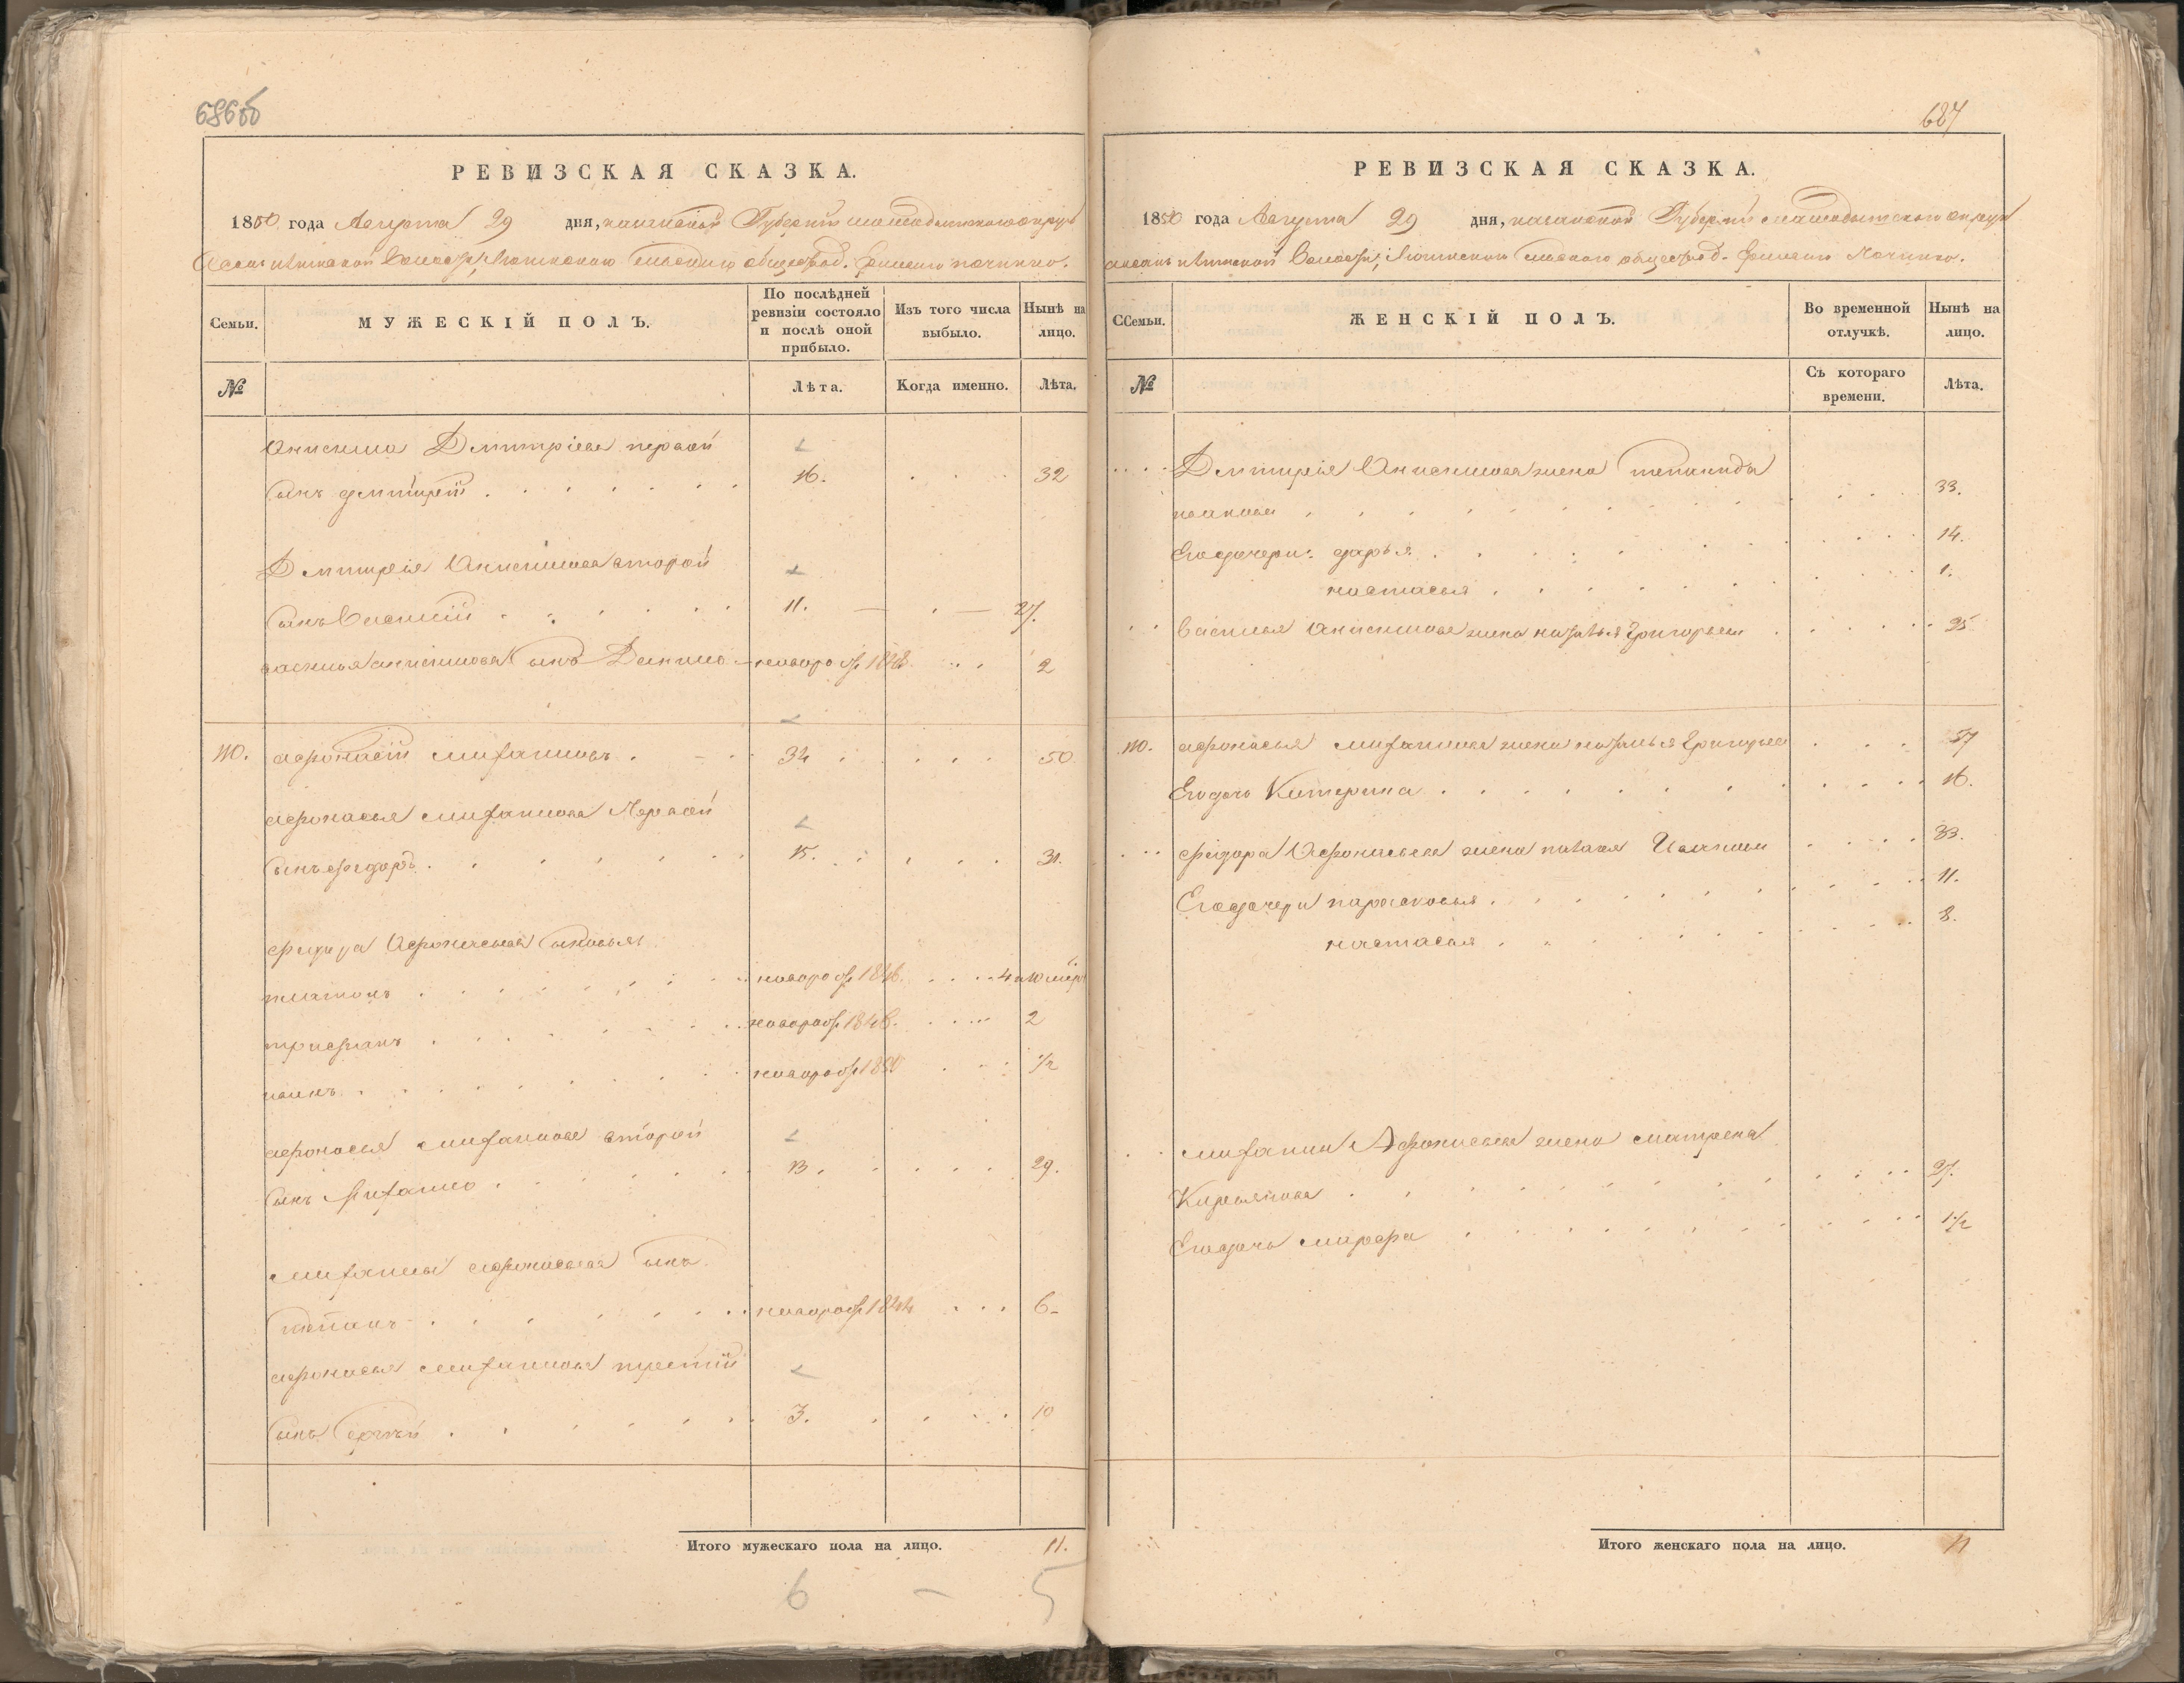 686об
РЕВИЗСКАЯ СКАЗКА.
1850 года Августа 29 дня, казанской Губерніи мамадышскаго округа
волости, сельскаго общества д. починка.
Семьи.
МУЖЕСКІЙ ПОЛЪ.
По послѣдней ревизіи состояло и послѣ оной прибыло.
Изъ того числа выбыло.
Нынѣ на лицо.
№
Лѣта.
Когда именно.
Лѣта.
Анисима Дмитріева первой
сынъ дмитрей 16. 32
Дмитрія Анисимова второй
сынъ Василій 11. 27.
василья анисимова сынъ Данило новорож 1848 2
110. афонасій митрофановъ 34 50
афонасья Первой
сынъ федоръ 15. 31.
федора Афонасьева сыновья
платонъ новорож 1846. 4
трифанъ новорож 1848. 2
иванъ новорож 1850 1/2
афонасья второй
сынъ 13. 29.
афонасьева сынъ
степанъ новорож 1844 6
афонасья третій
сынъ Сергѣй 3. 10
Итого мужескаго пола на лицо. 11.
6 – 5
687
РЕВИЗСКАЯ СКАЗКА.
1850 года Августа 29 дня, казанской Губерніи мамадышскаго округа
волости, сельскаго общества д. Починка.
ССемьи.
ЖЕНСКІЙ ПОЛЪ.
Во временной отлучкѣ.
Нынѣ на лицо.
№
Съ котораго времени.
Лѣта.
Дмитрія Анисимова жена степанида
иванова 33.
Его дочери: дарья 14.
настасья 1.
Василья Анисимова жена наталья Григорьева 25
110. афонасья жена наталья Григорьева 57
Его дочь Катерина 16.
федора Афонасьева жена Иванова 33.
Его дочери парасковья 11.
настасья 8.
Афонасьева жена матрена
Кирьянова 27.
Его дочь марфа 1 1/2
Итого женскаго пола на лицо. 11